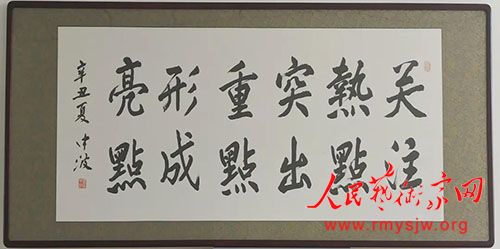 关注
熱點
突出
重點
形成
亮點
辛丑夏中波
人民艺术家网
www.rmysjw.org